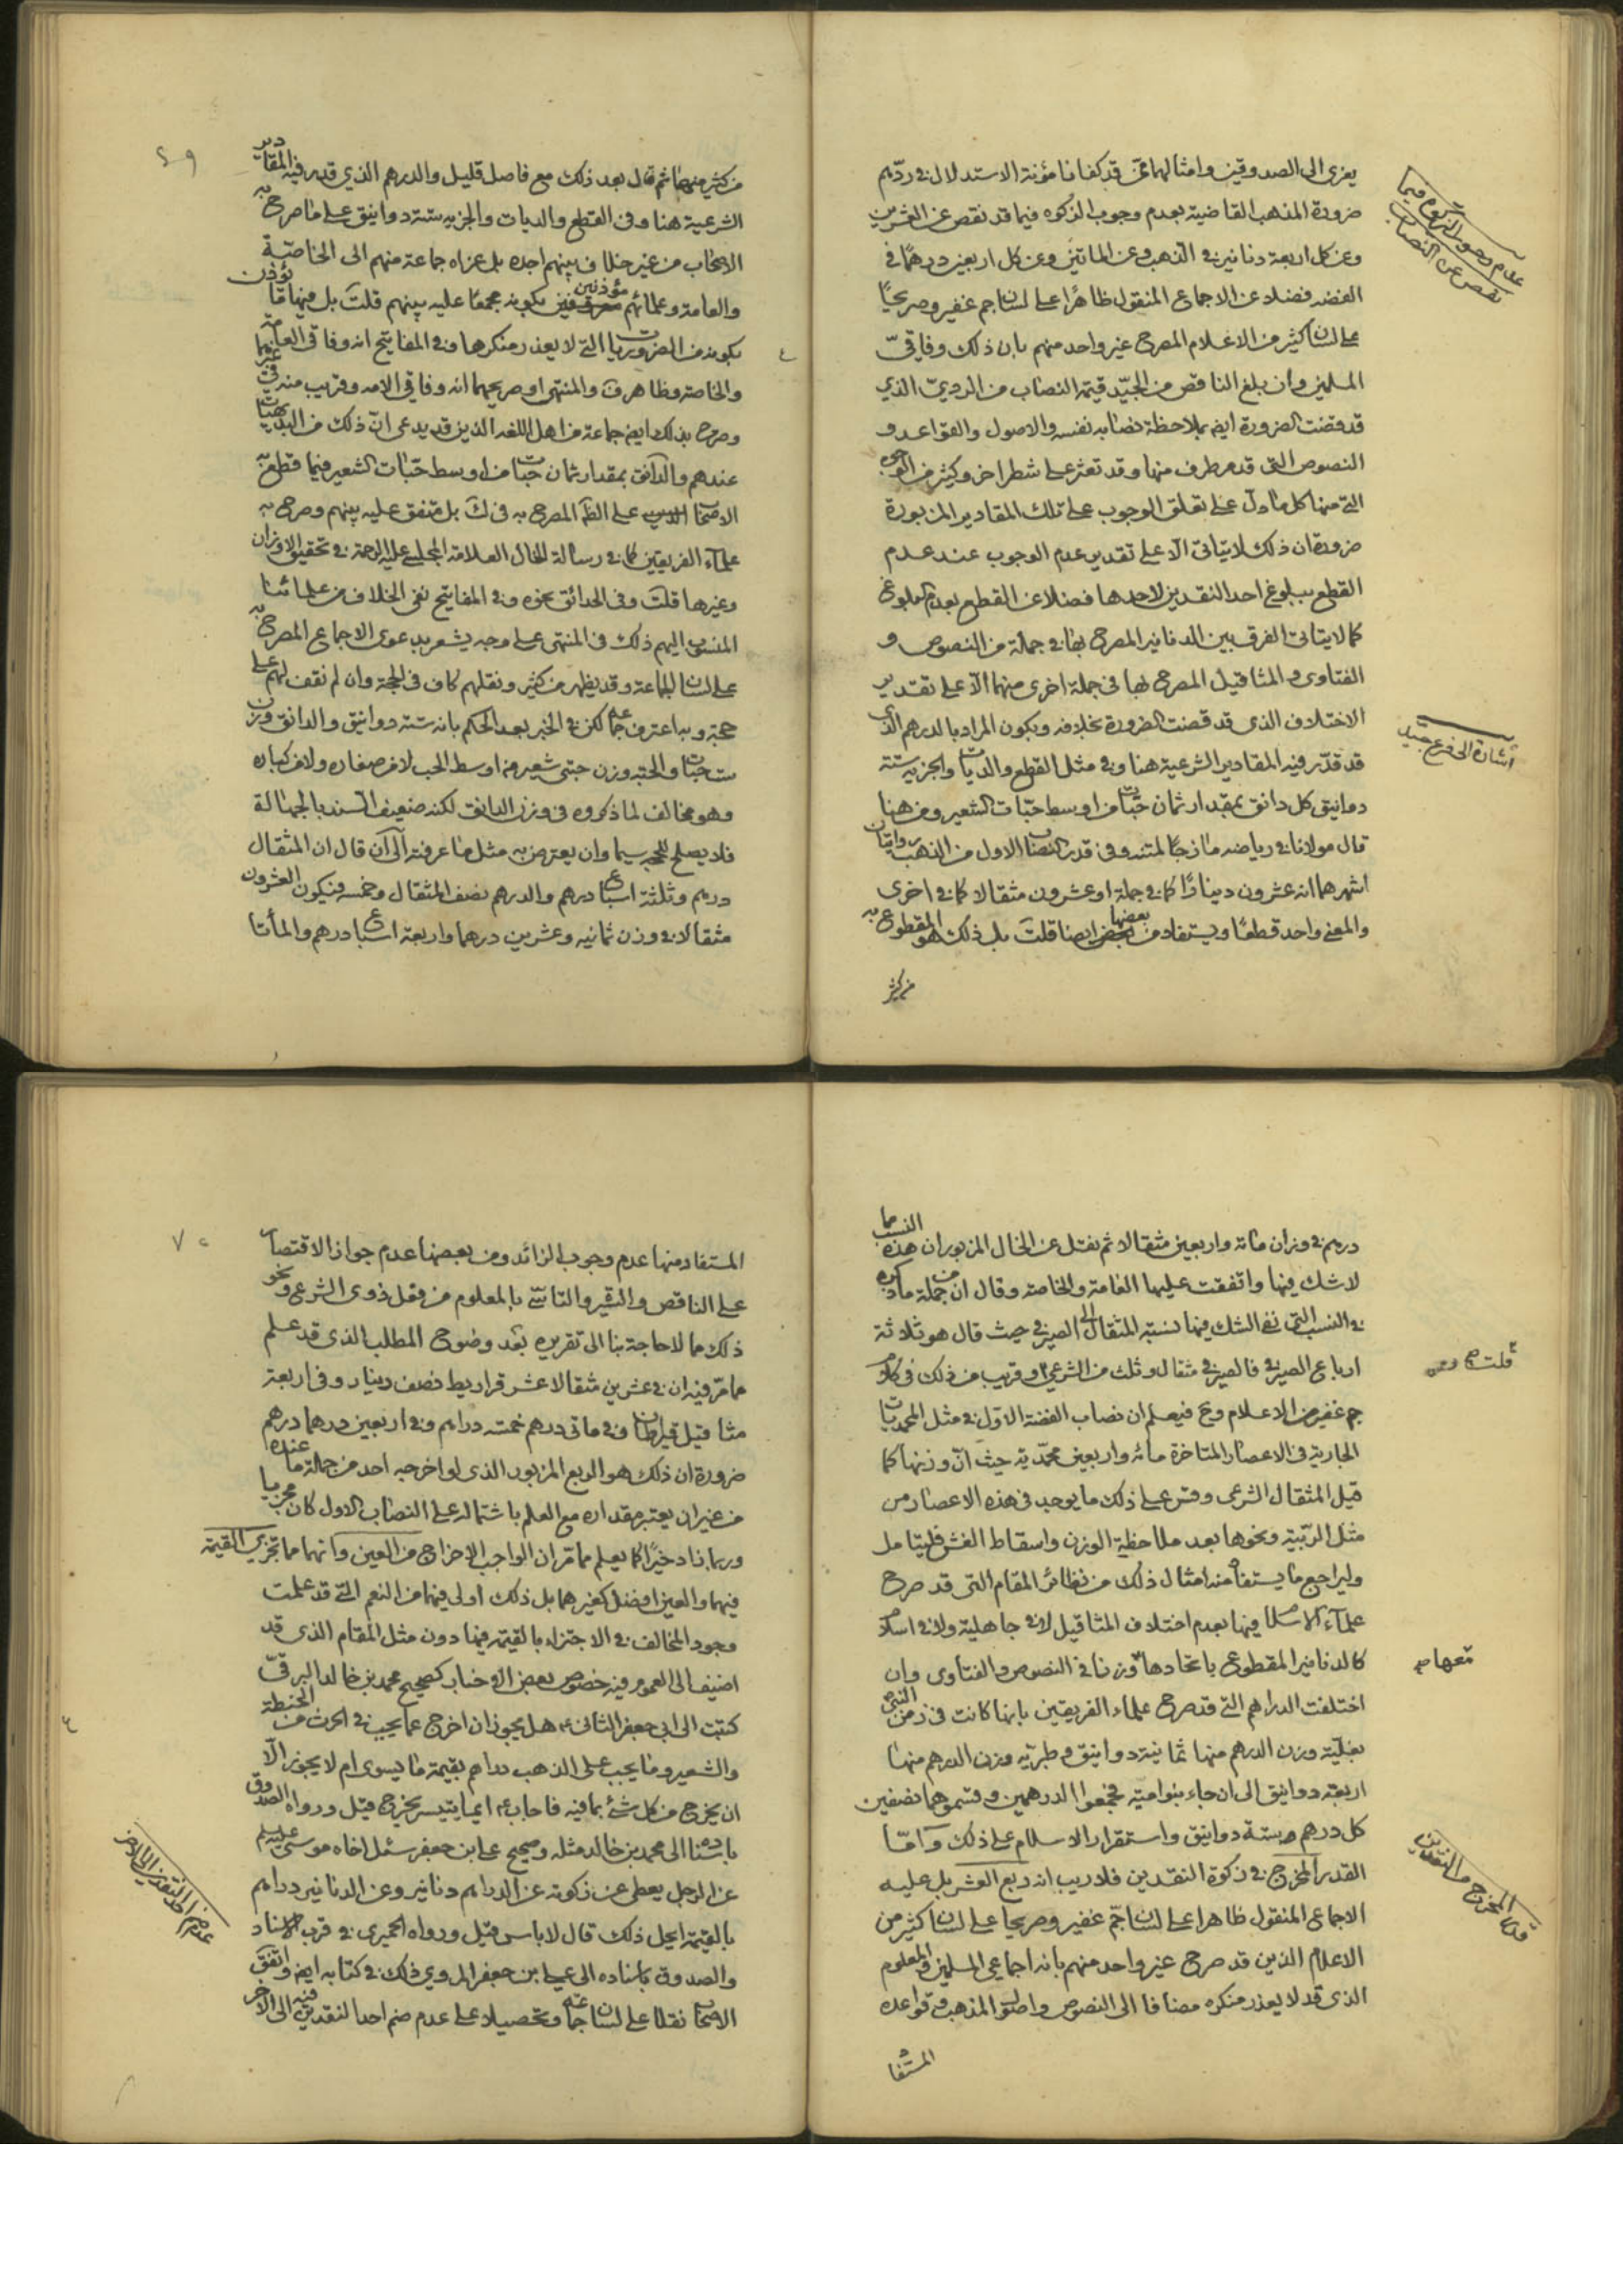 يعزى الى الصدوقين وامثالهما ممن قد كفانا مؤنة الاستدلال في ردّهم
ضرورة المذهب القاضية بعدم وجوب الزكوة فيما قد نقص عن العشرين
وعن كل اربعة دنانير في الذهب وعن المأتين وعن كل اربعين درهمًا في
الفضة فضلا عن الاجماع المنقول ظاهرًا على لسان جم غفير وصريحًا
على لسان كثير من الاعلام المصرح غير واحد منهم بان ذلك وفاقيّ
المسلمين وان بلغ الناقص من الجيّد قيمة النصاب من الرديّ الذي
قد قضت الضرورة ايضا بملاحظة نصابه نفسه والاصول والقواعد و
النصوص التي قد مر طرف منها وقد تعثر على شطر اخر وكثير من
التي منها كل ما دلّ على تعلق الوجوب على تلك المقادير المزبورة
ضرورة ان ذلك لا يتاتى الا على تقدير عدم الوجوب عند عدم
القطع ببلوغ احد النقدين لاحدها فضلا عن القطع بعدم البلوغ
كما لا يتاتى الفرق بين الدنانير المصرح بها في جملة من النصوص و
الفتاوى والمثاقيل المصرح بها في جملة اخرى منهما الا على تقدير
الاختلاف الذي قد قضت الضرورة بخلافه ويكون المراد بالدرهم الذي
قد قدّر فيه المقادير الشرعية هنا وفي مثل القطع والديات والجزية ستة
دوانيق كل دانق بمقدار ثمان حبات من اوسط حبّات الشعير ومن هنا
قال مولانا في رياضه مازجًا لمتنه وفي قدر النصاب الاول من الذهب روايتان
اشهرهما انه عشرون دينارًا كما في جملة او عشرون مثقالا كما في اخرى
والمعنى واحد قطعًا ويستفاد من بعضها ايضا قلت بل ذلك هو المقطوع به
من كثير
عدم وجوب الزكوة فيما
نقص عن النصاب
اشارة الى فرع جيد
من كثير منهما ثم قال بعد ذلك مع فاصل قليل والدرهم الذي قدر فيه المقادير
الشرعية هنا وفي القطع والديات والجزية ستة دوانيق على ما صرح به
الاصحاب من غير خلاف بينهم اجده بل عزاه جماعة منهم الى الخاصّة
والعامة وعلمائهم مؤذنين بكونه مجمعًا عليه بينهم قلت بل فيها ما يؤذن
بكونه من الضروريات التي لا يعذر منكرها وفي المفاتيح انه وفاقي العامة
والخاصة وظاهر ف والمنتهى او صريحهما انه وفاقي الامة وقريب منه في غيرها
وصرح بذلك ايضا جماعة من اهل اللغة الذين قد يدعى انّ ذلك من البديهيات
عندهم والدانق بمقدار ثمان حبات من اوسط حبّات الشعير فيما قطع به
الاصحاب على الظ المصرح به في ك بل متفق عليه بينهم وصرح به
علماء الفريقين كما في رسالة الخال العلامة المجلسي عليه الرحمة في تحقيق الاوزان
وغيرها قلت وفي الحدائق نحوه وفي المفاتيح نفى الخلاف من علمائنا
المنسوب اليهم ذلك في المنتهى على وجه يشعر بدعوى الاجماع المصرح به
على لسان الجماعة وقد يظهر من كثير ونقلهم كاف في الحجة وان لم نقف لهم على
حجة وبه اعترف جماعة لكن في الخبر بعد الحكم بانه ستة دوانيق والدانق وزن
ست حبات والحبة وزن حبتي شعير من اوسط الحب لا من صغاره ولا من كباره
وهو مخالف لما ذكروه في وزن الدانق لكنه ضعيف السند بالجهالة
فلا يصلح للحجية سيما وان يعترض به مثل ما عرفته الى ان قال ان المثقال
درهم وثلثة اسباع درهم والدرهم نصف المثقال وخمسه فيكون العشرون
مثقالا في وزن ثمانية وعشرين درهما واربعة اسباع درهم والمأتا
درهم في وزان مائة واربعين مثقالا ثم نقل عن الخال المزبور ان هذه النسب مما
لا شك فيها واتفقت عليها العامة والخاصة وقال ان من جملة ما ذكره
في النسب التي نفى الشك فيها نسبة المثقال الى الصيرفي حيث قال هو ثلاثة
ارباع الصيرفي فالصيرفي مثقال وثلث من الشرعي وقريب من ذلك في كلام
جم غفير من الاعلام وح فيعلم ان نصاب الفضة الاوّل في مثل المحمديات
الجارية في الاعصار المتاخرة مائة واربعين محمّدية حيث انّ وزنها كما
قيل المثقال الشرعى وقس على ذلك ما يوجد في هذه الاعصار من
مثل الربّية ونحوها بعد ملاحظة الوزن واسقاط الغش فليتامل
وليراجع ما يستفاد منه امثال ذلك من نظائر المقام التي قد صرح
علماء الاسلام فيها بعدم اختلاف المثاقيل لا في جاهلية ولا في اسلام
كالدنانير المقطوع باتحادها وزنا في النصوص والفتاوى وان
اختلفت الدراهم التي قد صرح علماء الفريقين بانها كانت في زمن النبي
بغليّة وزن الدرهم منها ثمانية دوانيق وطبريّه وزن الدرهم منها
اربعة دوانيق الى ان جاء بنو امية فجمعوا الدرهمين وقسموهما نصفين
كل درهم ستة دوانيق واستقرار الاسلام على ذلك وامّا
القدر المخرج في زكوة النقدين فلا ريب انه ربع العشر بل عليه
الاجماع المنقول ظاهرا على لسان جمّ غفير وصريحا على لسان كثير من
الاعلام الذين قد صرح غير واحد منهم بانه اجماعي المسلمين والمعلوم
الذي قد لا يعذر منكره مضافا الى النصوص واصول المذهب وقواعده
المستفا
قلت
معها
قدر المخرج من النقدين
المستفاد منها عدم وجوب الزائد ومن بعضها عدم جواز الاقتصار
على الناقص والسير والتاسّي بالمعلوم من فعل ذوي الشرع ونحو
ذلك مما لا حاجة بنا الى تقريره بعد وضوح المطلب الذي قد علم
مما مرّ فيه ان في عشرين مثقالا عشر قراريط نصف دينار وفي اربعة
مثاقيل قيراطان وفي مأتى درهم خمسة دراهم وفي اربعين درهما درهم
ضرورة ان ذلك هو الربع المزبور الذي لو اخرجه احد من جملة ما عنده
من غير ان يعتبر مقداره مع العلم باشتماله على النصاب الاول كان مجزيا
وربما زاد خيرًا كما يعلم مما مرّ ان الواجب الاخراج من العين وانهما مما تجزي القيمة
فيهما والعين افضل كغيرهما بل ذلك اولى فيهما من النعم التي قد علمت
وجود المخالف في الاجتزاء بالقيمة فيها دون مثل المقام الذي قد
اضيف الى العموم فيه خصوص بعض الاخبار كصحيح محمد بن خالد البرقيّ
كتبت الى ابي جعفر الثاني ع هل يجوز ان اخرج عما يجب في الحرث من الحنطة
والشعير وما يجب على الذهب دراهم بقيمة ما يسوى ام لا يجوز الّا
ان يخرج من كل شئ بما فيه فاجاب ع ايما يتيسر يخرج قيل ورواه الصدوق
باسناده الى محمد بن خالد مثله وصحيح علي ابن جعفر سئل اخاه موسى عليه السلم
عن الرجل يعطي عن زكوته عن الدراهم دنانير وعن الدنانير دراهم
بالقيمة ايحل ذلك قال لا باس قيل ورواه الحميري في قرب الاسناد
والصدوق باسناده الى علي ابن جعفر المروي ذلك في كتابه ايضا واتفق
الاصحاب نقلا على لسان جماعة وتحصيلا على عدم ضم احد النقدين فيه الى الاخر
عدم ضم احد النقدين الى الاخر